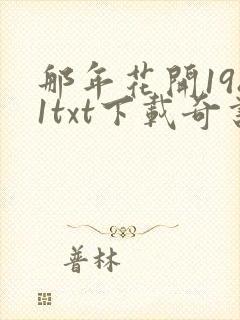 那年花開19
1txt下載奇
普林